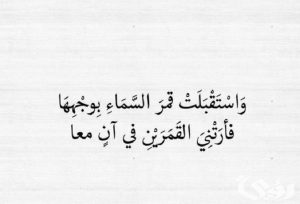 وَاسْتَقْبَلَتْ قمرَ السَّمَاءِ بِوجْهِهَا
فأرَتْنِيَ القَمَرَيْنِ في آنٍ معا